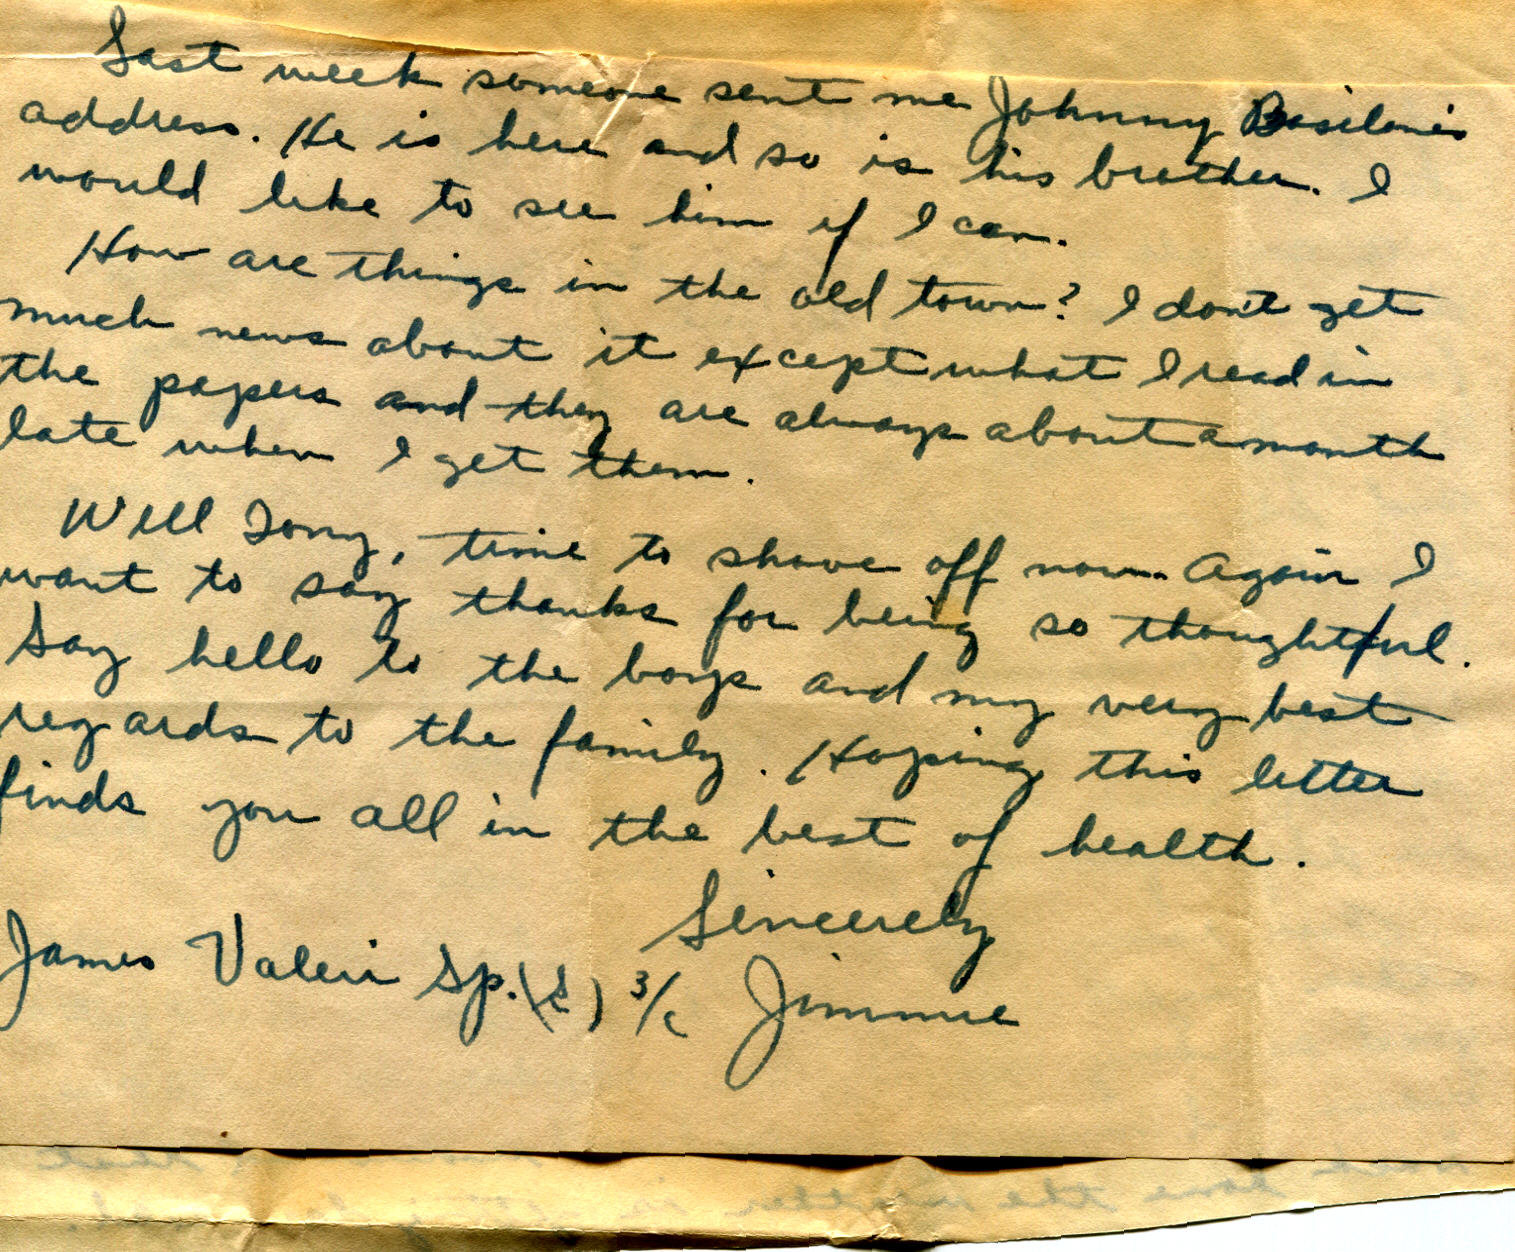 Last week someone sent me Johnny Basilone's
address. He is here and so is his brother. I
would like to see him if I can.
How are things in the old town? I don't get
much news about it except what I read in
the papers and they are always about a month
late when I get them.
Well Tony, time to shove off now. Again I
want to say thanks for being so thoughtful.
Say hello to the boys and my very best
regards to the family. Hoping this letter
finds you all in the best of health.
Sincerely
James Valeri Sp. ( ) 3/c Jimmie